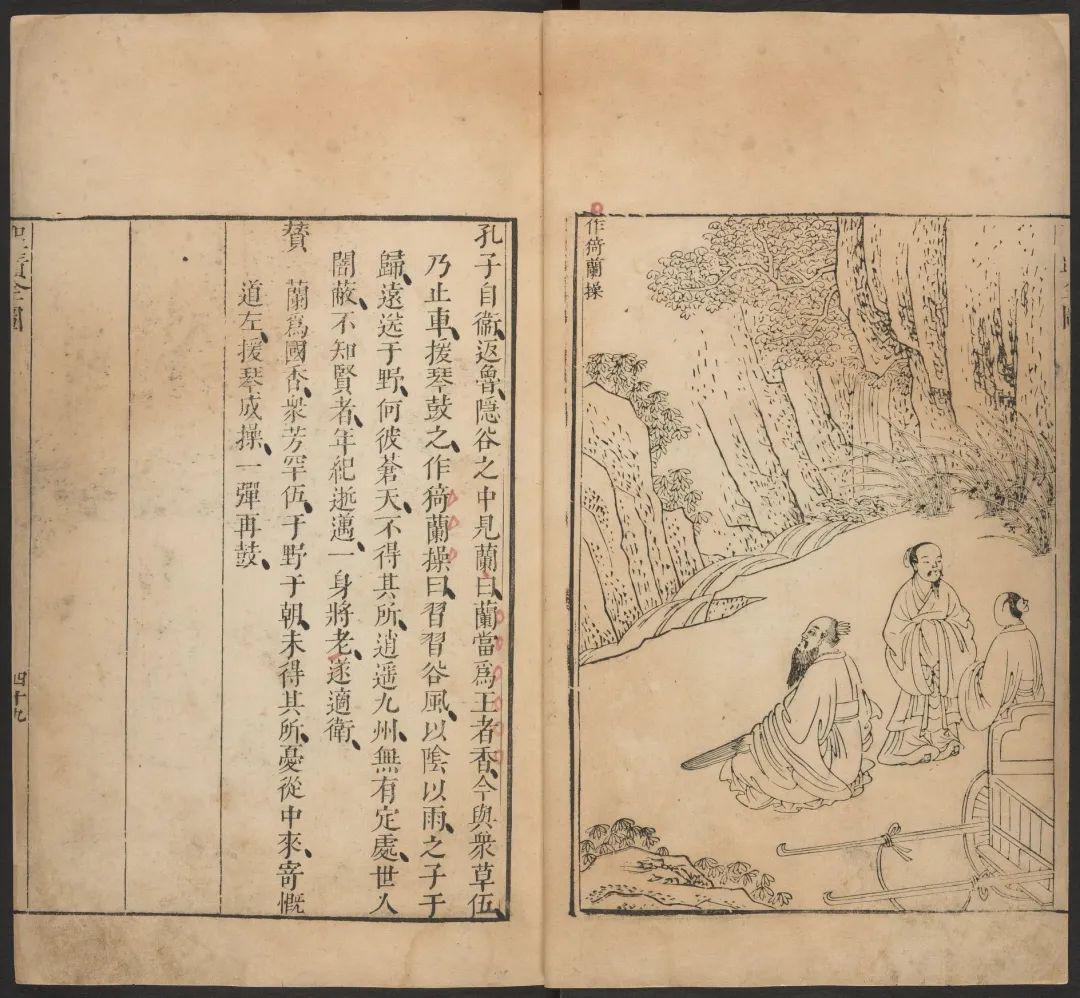 作猗蘭操
孔子自衞返魯隱谷之中見蘭曰蘭當爲王者香今與衆草伍
乃止車援琴鼓之作猗蘭操曰習習谷風以陰以雨之子于
歸遠送于野何彼蒼天不得其所逍遥九州無有定處世人
闇蔽不知賢者年紀逝邁一身將老遂適衛
賛 蘭爲國香衆芳罕伍于野于朝未得其所憂從中來寄慨
道左援琴成操一彈再鼓
四十九